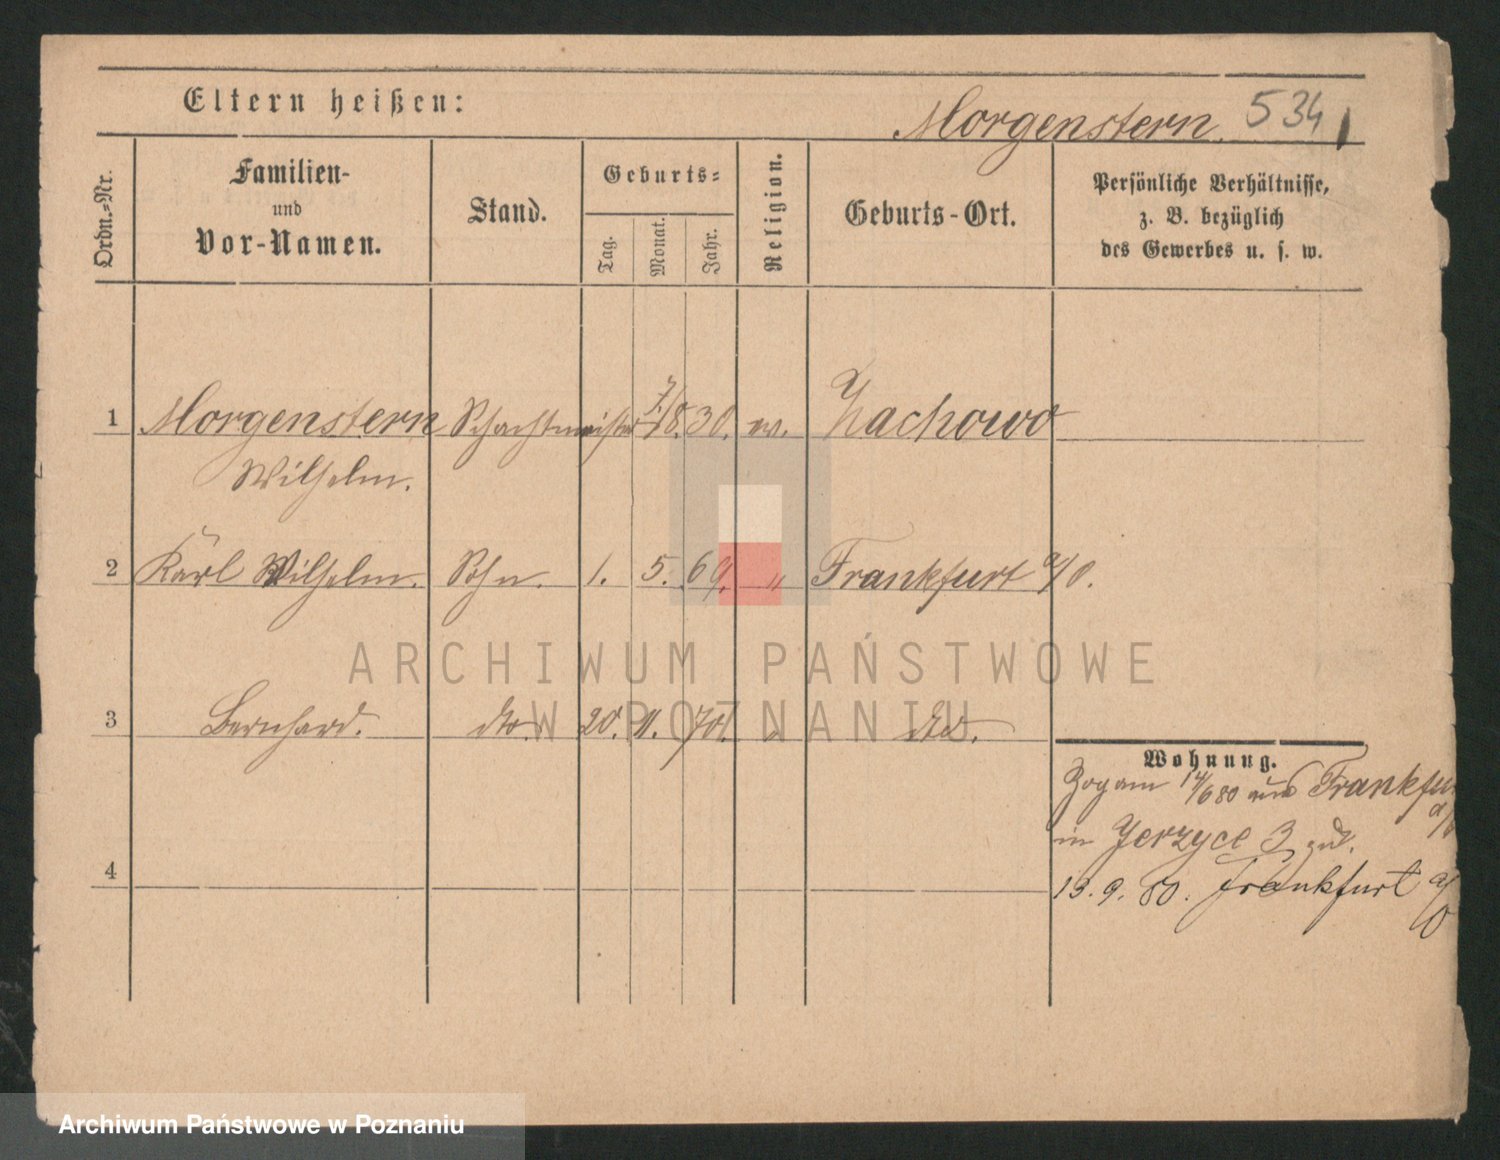 Eltern heißen:
Morgenstern. 534
Ordn.=Nr.
Familien-
und
Vor-Namen.
Stand.
Geburts=
Tag.
Monat.
Jahr.
Religion.
Geburts-Ort.
Persönliche Verhältnisse,
z. B. bezüglich
des Gewerbes u. s. w.
1 Morgenstern Schachtmeister 7/18. 30. ev. Zachowo
Wilhelm.
2 Karl Wilhelm. Sohn. 1. 5. 69. " Frankfurt a/O.
3 Bernhard. dto. 20. 11. 70. " dto.
4
Wohnung.
Zog am 14/6 80 aus Frankfu
a/
in Jerzyce 3 zu.
13. 9. 80. Frankfurt a/O
ARCHIWUM PAŃSTWOWE
W POZNANIU
Archiwum Państwowe w Poznaniu